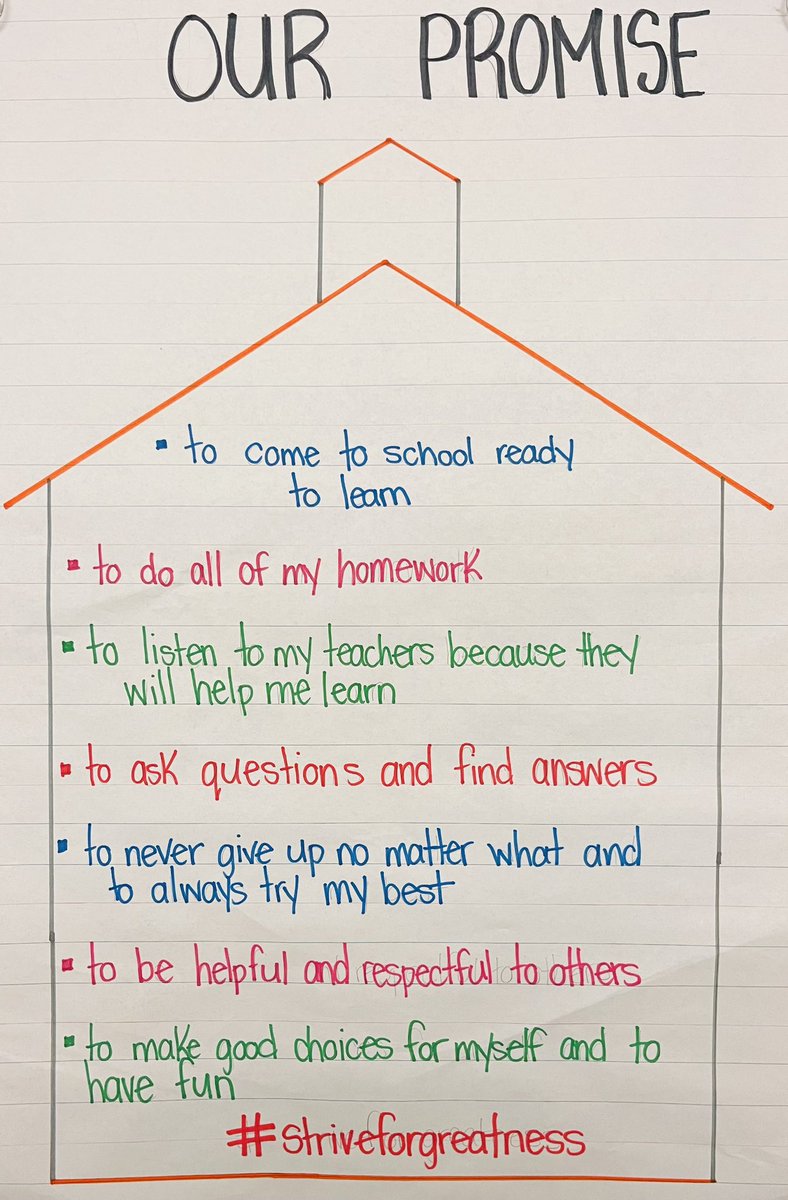 OUR PROMISE
▪ to come to school ready
to learn
▪ to do all of my homework
▪ to listen to my teachers because they
will help me learn
▪ to ask questions and find answers
▪ to never give up no matter what and
to always try my best
▪ to be helpful and respectful to others
▪ to make good choices for myself and to
have fun
#striveforgreatness